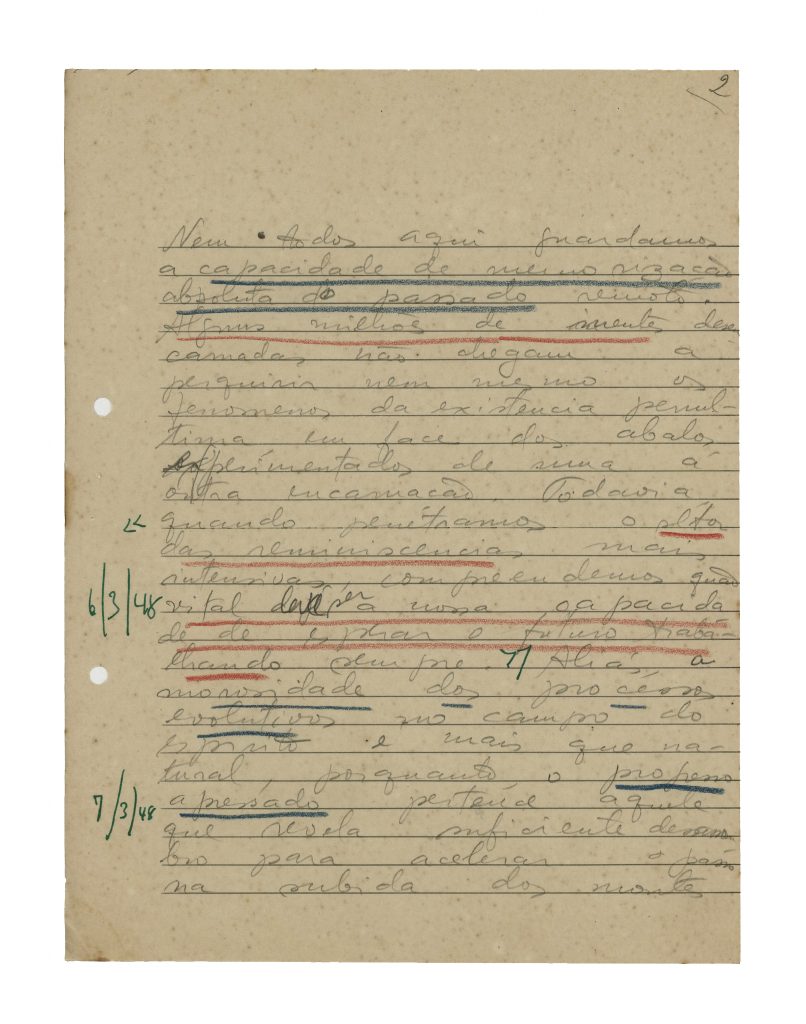 2
Nem todos aqui guardamos
a capacidade de memorização
absoluta do passado remoto.
Alguns milhões de mentes desen
carnadas não chegam a
perquirir nem mesmo os
fenomenos da existência penúl-
tima em face dos abalos
experimentados de uma á
outra encarnação. Todavia
quando penétramos o sétor
das reminiscencias mais
intensivas, compreendemos quão
6/3/48 vital deve ser a nossa capacida
de de esperar o futuro traba-
lhando sempre. Aliás, a
morosidade dos procéssos
evolutivos no campo do
espirito é mais que na-
tural, porquanto, o progresso
7/3/48 apressado pertence áquele
que revela suficiente desassom
bro para acelerar o passo
na subida dos montes